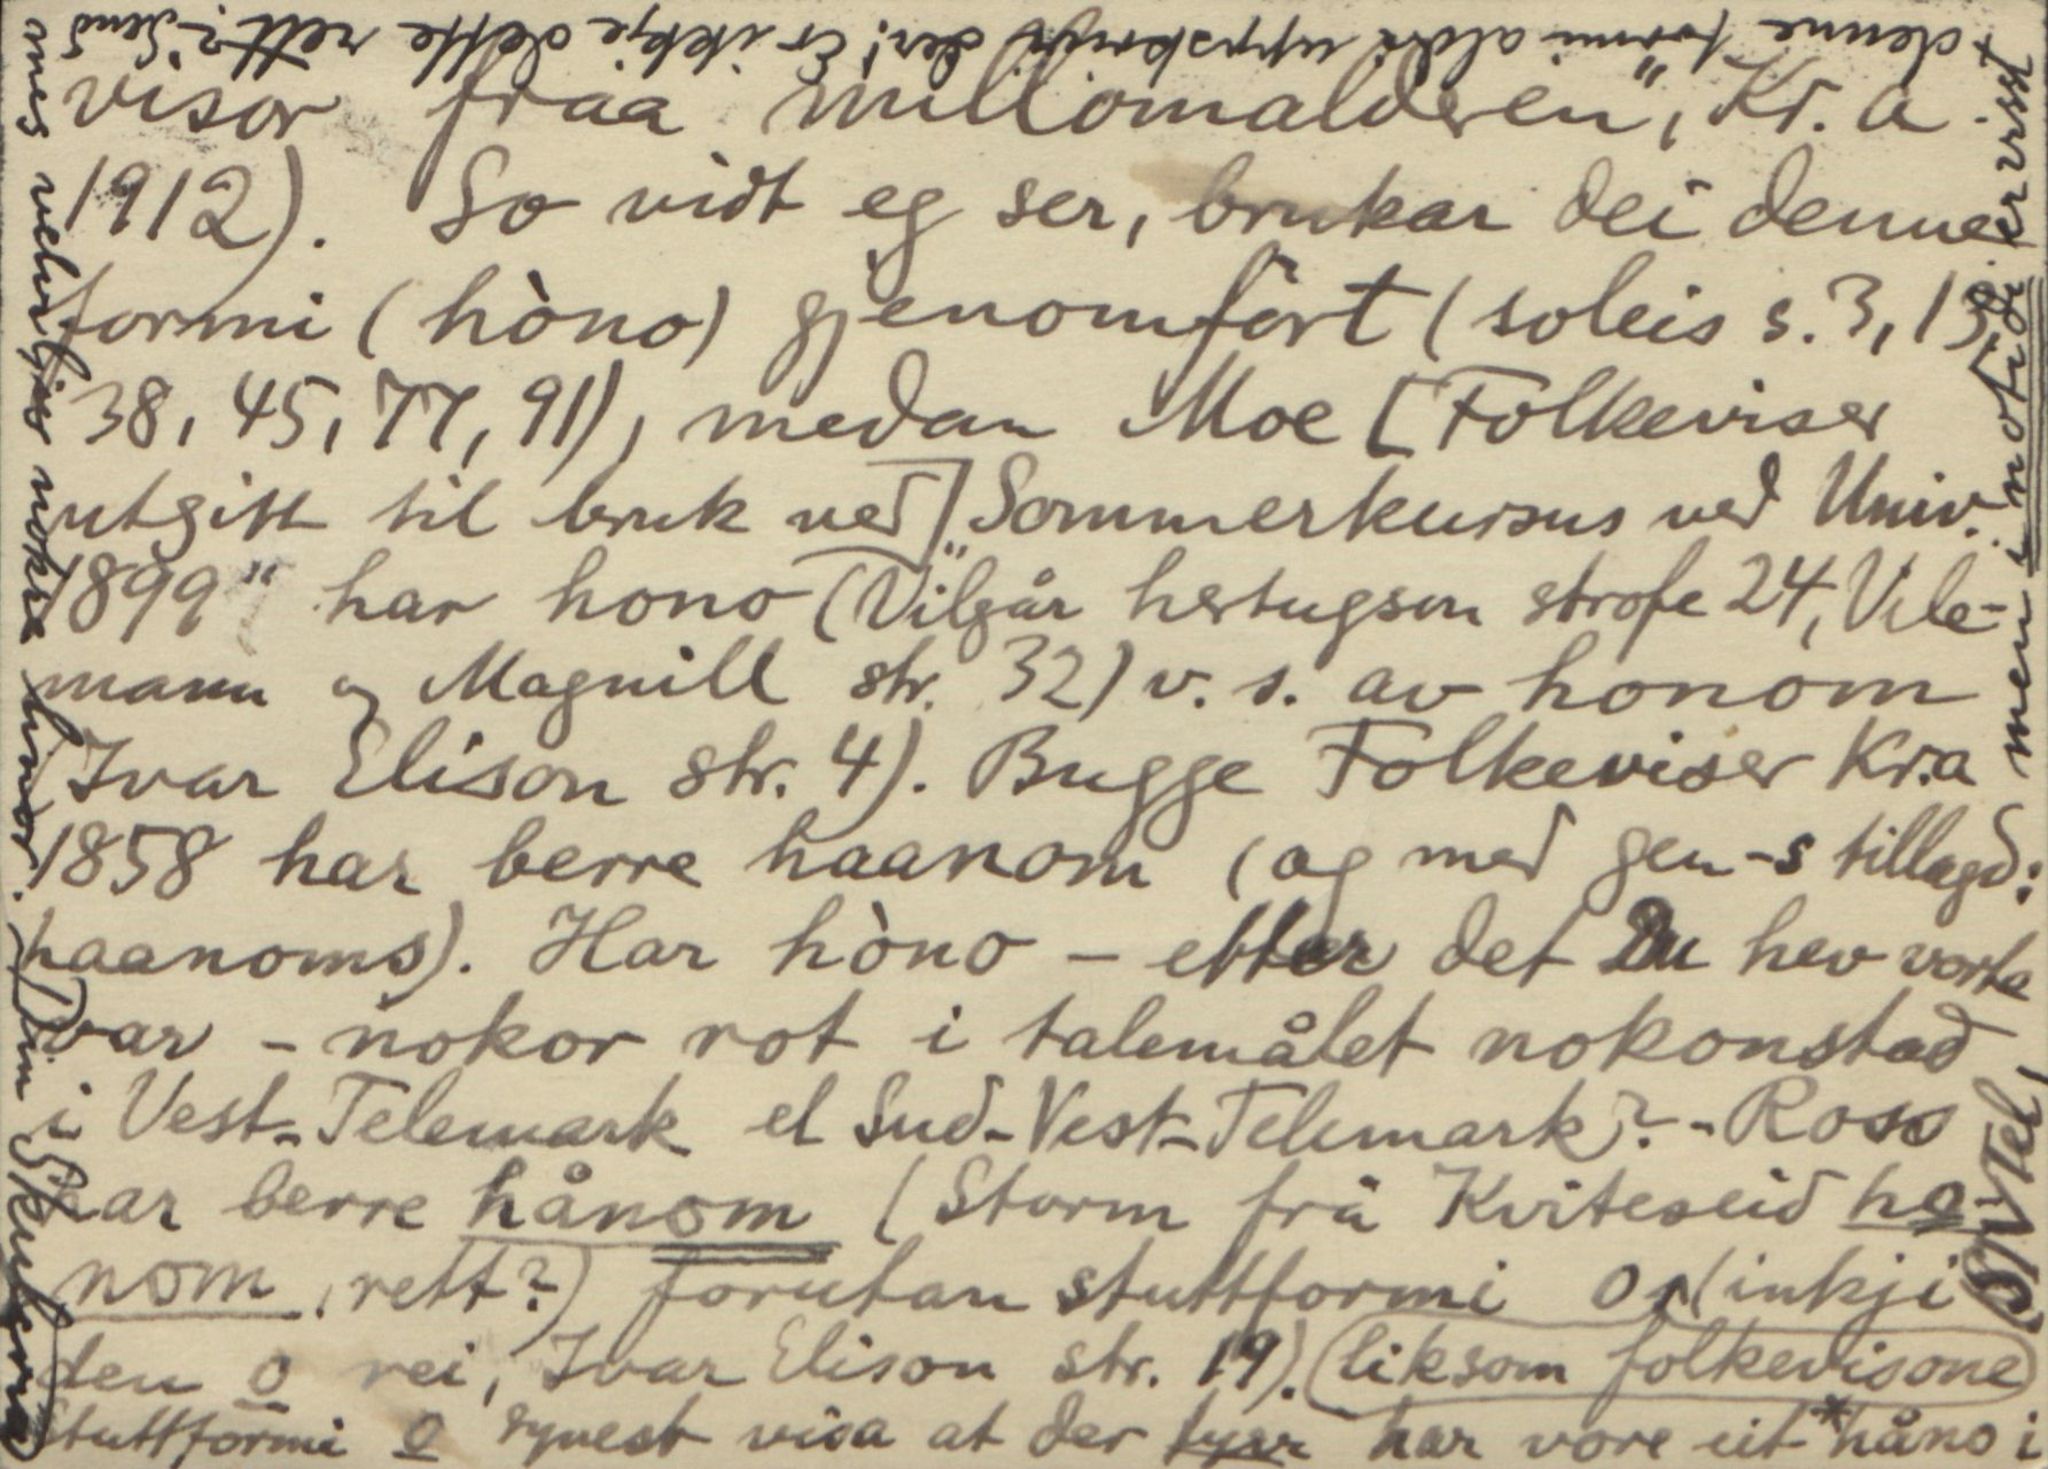 visor fraa millomalderen", Kr.a
1912). So vidt eg ser, brukar dei denne
formi (hòno) gjenomført (soleis s. 3, 13,
38, 45, 77, 91), medan Moe [Folkeviser
utgitt til bruk ved] "Sommerkursus ved Univ.
1899" har hono (Vilgår hertugson strofe 24, Vile-
mann og Magnill str. 32) v. s. av honom
(Ivar Elison str. 4). Bugge Folkeviser Kr.a
1858 har berre haanom (og med gen -s tillagd:
haanoms). Har hòno – etter det Du hev vorte
var – nokor rot i talemålet nokonstad
i Vest-Telemark el Sud-Vest-Telemark? - Ross
har berre hånom (Storm frå Kviteseid ho-
nom, rett?) forutan stuttformi o, (inkji
den o rei, Ivar Elison str. 19). (liksom folkevisone)
Stuttformi o synest visa at der har vore eit *håno i
(SVTel, men i notidi er visst
denne formi aldri uppskrift der! Er ikkje dette rett? Send
meg velvilligst nokre linor. Din i Skulerud)